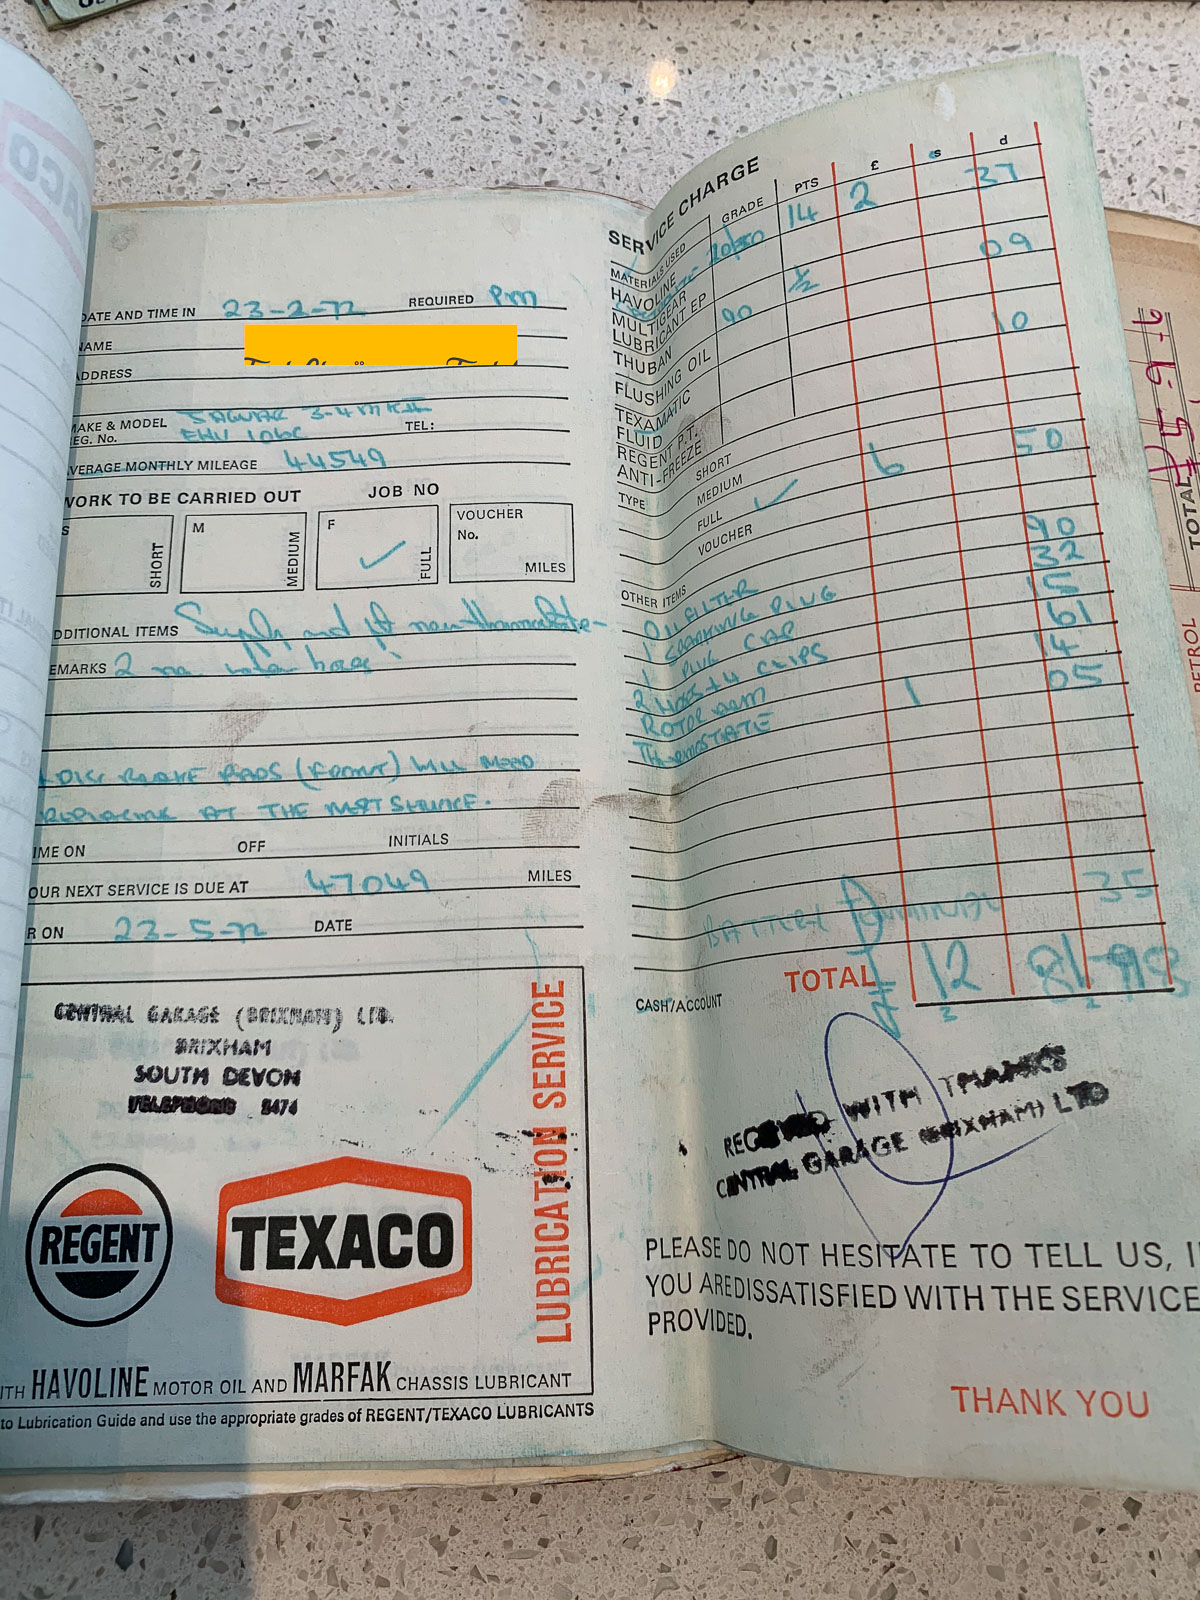 DATE AND TIME IN 23-2-72 REQUIRED Pm
NAME
ADDRESS
MAKE & MODEL JAGUAR 3-4 MK II
REG. No. EHV 106C TEL:
AVERAGE MONTHLY MILEAGE 44549
WORK TO BE CARRIED OUT JOB NO
S SHORT M MEDIUM F ✓ FULL VOUCHER No. MILES
ADDITIONAL ITEMS Supply and fit new thermostate -
REMARKS 2 no. water hoses
DISC BRAKE PADS (FRONT) WILL NEED
REPLACING AT THE NEXT SERVICE.
TIME ON OFF INITIALS
YOUR NEXT SERVICE IS DUE AT 47049 MILES
OR ON 23-5-72 DATE
CENTRAL GARAGE (BRIXHAM) LTD.
BRIXHAM
SOUTH DEVON
TELEPHONE 2474
LUBRICATION SERVICE
REGENT
TEXACO
WITH HAVOLINE MOTOR OIL AND MARFAK CHASSIS LUBRICANT
to Lubrication Guide and use the appropriate grades of REGENT/TEXACO LUBRICANTS
SERVICE CHARGE £ s d
MATERIALS USED GRADE PTS
HAVOLINE 20/50 14 2 37
MULTIGEAR LUBRICANT EP 90 ½ 09
THUBAN 10
FLUSHING OIL
TEXAMATIC FLUID
REGENT P.T. ANTI-FREEZE
TYPE SHORT
MEDIUM
FULL ✓ 6 50
VOUCHER
OTHER ITEMS
OIL FILTER 90
1 SPARKING PLUG 32
1 PLUG CAP 15
2 HOSES + 4 CLIPS 1 61
ROTOR ARM 14
THERMOSTATE 05
BATTERY TERMINAL 35
TOTAL £ 12
CASH/ACCOUNT
RECEIVED WITH THANKS
CENTRAL GARAGE (BRIXHAM) LTD
PLEASE DO NOT HESITATE TO TELL US, I
YOU ARE DISSATISFIED WITH THE SERVICE
PROVIDED.
THANK YOU
TOTAL
PETROL